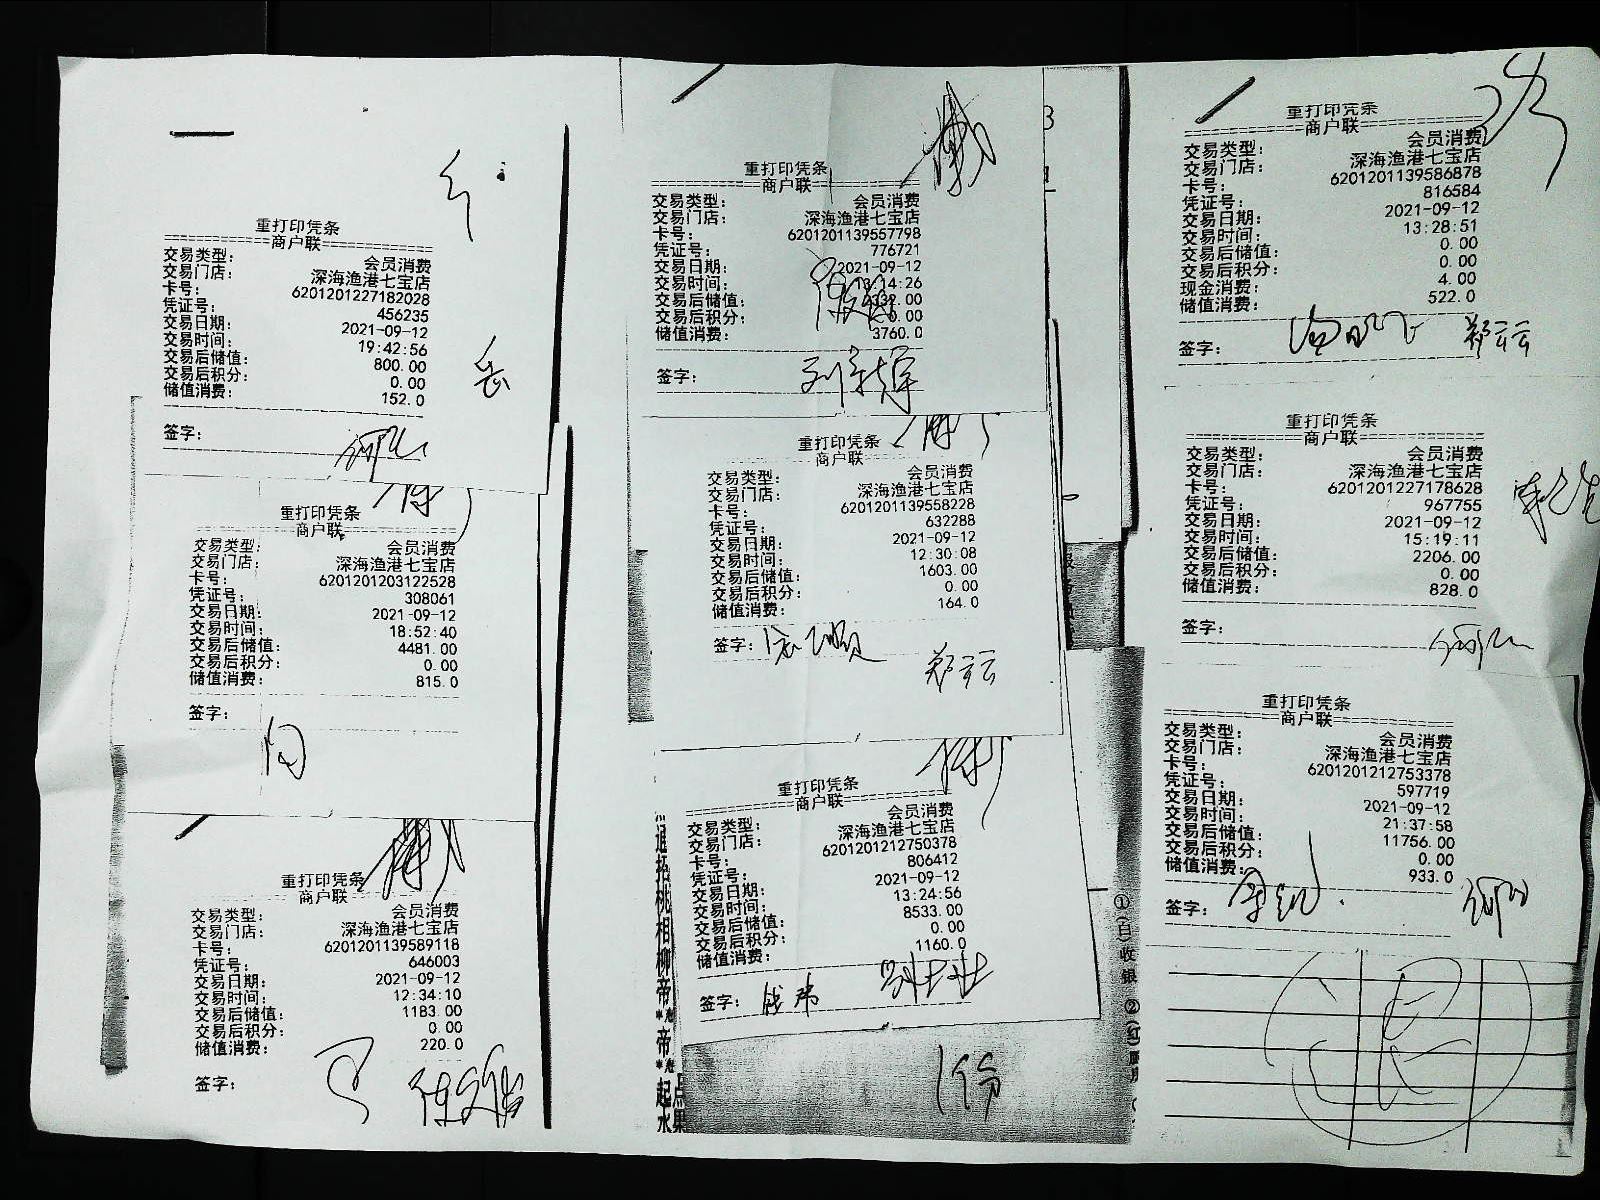 重打印凭条
商户联
交易类型： 会员消费
交易门店： 深海渔港七宝店
卡号： 6201201227182028
凭证号： 456235
交易日期： 2021-09-12
交易时间： 19:42:56
交易后储值： 800.00
交易后积分： 0.00
储值消费： 152.0
签字：
重打印凭条
商户联
交易类型： 会员消费
交易门店： 深海渔港七宝店
卡号： 6201201203122528
凭证号： 308061
交易日期： 2021-09-12
交易时间： 18:52:40
交易后储值： 4481.00
交易后积分： 0.00
储值消费： 815.0
签字：
重打印凭条
商户联
交易类型： 会员消费
交易门店： 深海渔港七宝店
卡号： 6201201139589118
凭证号： 646003
交易日期： 2021-09-12
交易时间： 12:34:10
交易后储值： 1183.00
交易后积分： 0.00
储值消费： 220.0
签字：
重打印凭条
商户联
交易类型： 会员消费
交易门店： 深海渔港七宝店
卡号： 6201201139557798
凭证号： 776721
交易日期： 2021-09-12
交易时间：
交易后储值：
交易后积分：
储值消费： 3760.0
签字：
重打印凭条
商户联
交易类型： 会员消费
交易门店： 深海渔港七宝店
卡号： 6201201139558228
凭证号： 632288
交易日期： 2021-09-12
交易时间： 12:30:08
交易后储值： 1603.00
交易后积分： 0.00
储值消费： 164.0
签字：
郑云云
重打印凭条
商户联
交易类型： 会员消费
交易门店： 深海渔港七宝店
卡号： 6201201212750378
凭证号： 806412
交易日期： 2021-09-12
交易时间： 13:24:56
交易后储值： 8533.00
交易后积分： 0.00
储值消费： 1160.0
签字： 钱玮
重打印凭条
商户联
交易类型： 会员消费
交易门店： 深海渔港七宝店
卡号： 6201201139586878
凭证号： 816584
交易日期： 2021-09-12
交易时间： 13:28:51
交易后储值： 0.00
交易后积分： 0.00
现金消费： 4.00
储值消费： 522.0
签字： 郑云云
重打印凭条
商户联
交易类型： 会员消费
交易门店： 深海渔港七宝店
卡号： 6201201227178628
凭证号： 967755
交易日期： 2021-09-12
交易时间： 15:19:11
交易后储值： 2206.00
交易后积分： 0.00
储值消费： 828.0
签字：
重打印凭条
商户联
交易类型： 会员消费
交易门店： 深海渔港七宝店
卡号： 6201201212753378
凭证号： 597719
交易日期： 2021-09-12
交易时间： 21:37:58
交易后储值： 11756.00
交易后积分： 0.00
储值消费： 933.0
签字：
①(白)收银 ②(红)